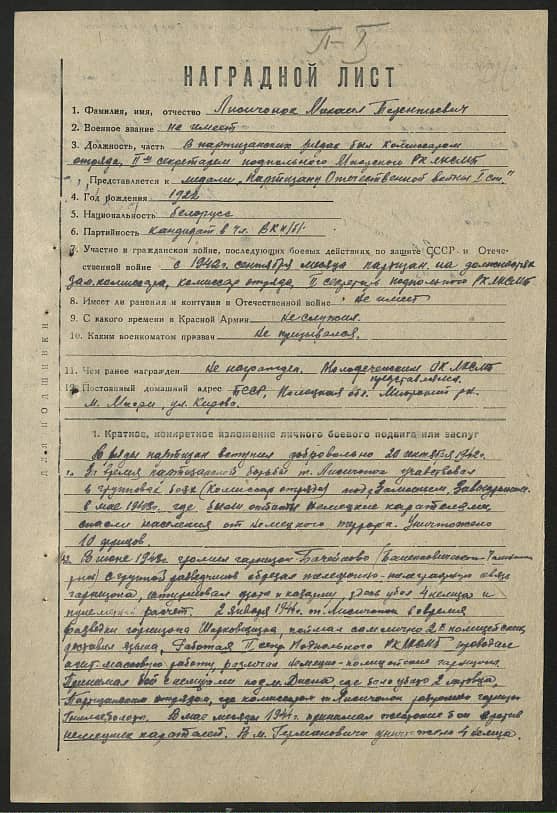 П-I
НАГРАДНОЙ ЛИСТ
1. Фамилия, имя, отчество Лисичонок Михаил Терентьевич
2. Военное звание не имеет
3. Должность, часть В партизанских рядах был комиссаром
отряда, II-м секретарем подпольного Миорского РК ЛКСМБ
Представляется к медали "Партизану Отечественной войны I ст."
4. Год рождения 1922
5. Национальность белорусс
6. Партийность кандидат в чл. ВКП/б/
7. Участие в гражданской войне, последующих боевых действиях по защите СССР и Отече-
ственной войне с 1942 г. сентября месяца партизан. на должностях
зам. комиссара, комиссар отряда, II секретарь подпольного РК ЛКСМБ
8. Имеет ли ранения и контузии в Отечественной войне Не имеет
9. С какого времени в Красной Армии Не служил.
10. Каким военкоматом призван Не призывался.
11. Чем ранее награжден Не награжден. Молодечненским ОК ЛКСМБ
представлялся.
12. Постоянный домашний адрес БССР, Полоцкая обл. Миорский рн.
м. Миоры, ул. Кирова.
для подшивки
1. Краткое, конкретное изложение личного боевого подвига или заслуг
В ряды партизан вступил добровольно 20 1942 г.
За время партизанской борьбы т. Лисичонок участвовал
в групповых боях (Комиссар отряда) под
в мае 1943 г. где были отбиты немецкие каратели,
спасли население от немецкого террора. Уничтожено
10 фрицов.
2. В июне 1943 г. громили гарнизон
с группой разведчиков обрезал телефонно-телеграфную связь
гарнизона, казармы, здесь убил 4 немца и
пулеметный расчет. 2 января 1944 г. т. Лисичонок во время
разведки гарнизона Шарковщизна, поймал самолично 2х полицейских,
доставил языка. Работая II секр. Подпольного РК ЛКСМБ проводил
агит-массовую работу, разлагал немецко-полицейские гарнизоны.
Принимал бой с немцами под м. Дисна где было убито 2
Партизанским отрядом, где комиссаром т. Лисичонок гарнизон
В мае месяце 1944 г. принимал бои против
немецких карателей. В м. Германовичи уничтожено 4 немца.